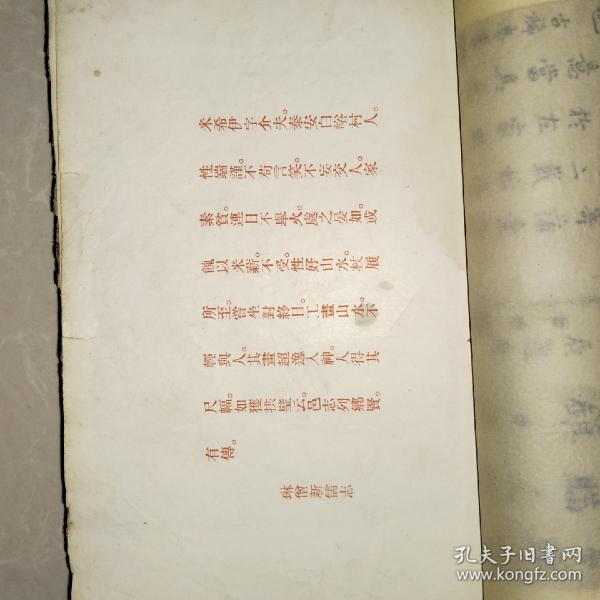 米希伊字介夫。泰安白峪村人。
性謹。不苟言笑。不妄交人。家
素貧。連日不舉火。處之晏如。或
餽以米薪。不受。性好山水。杖履
所至。嘗坐對終日。工畫山水。不
輕與人。其畫超逸入神。人得其
尺幅。如獲拱璧云。邑志列鄉賢。
有傳。
琳僧新儒志
孔夫子旧书网
www.kongfz.com